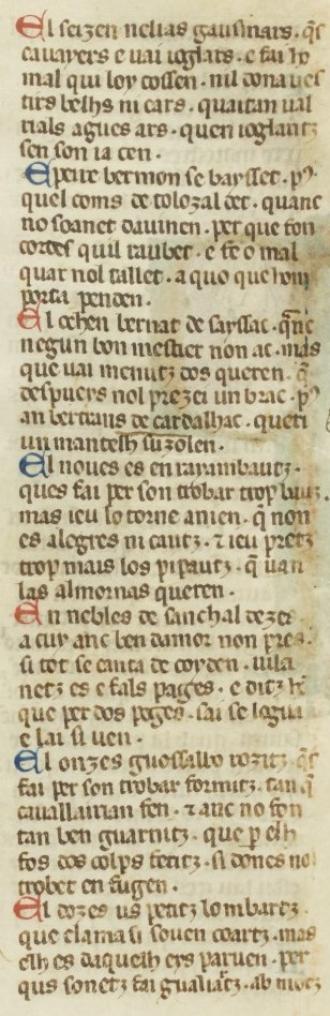 El seizen nelias gausmars. q̄s
cauayers e uai ioglars. e fai ho
mal qui loy cossen. nil dona ues
tirs belhs ni cars. quaitan ual
rials agues ars. quen ioglantz
sen son ia cen.
E peire bermon se baysset. pꝰ
quel coms de tolozal det. quanc
no soanet dauinen. per que fon
cortes quil raubet. e fe o mal
quar nol tallet. aquo que hom
porta penden.
El ochen bernat de sayssac. q̄nc
negun bon mestier non ac. mas
que uai menutz dos queren. q̄
despueys nol prezei un brac. pꝰ
an bertrans de cardalhac. queri
un mantelh suzolen.
El noues es en raymbautz.
ques fai per son trobar trop bautz.
mas ieu lo torne a nien. q̄ non
es alegres ni cautz. ⁊ ieu pretz
trop mais los pipautz. q̄ uan
las almornas queren.
En nebles de sanchal dezes
a cuy anc ben damor non pres.
si tot se canta de coyden. uila
netz es e fals pages. e ditz hō
que per dos poges. sai se logua
e lai si uen.
El onzes guossalbo rozitz. q̄s
fai per son trobar formitz. tan q̄
cauallairian fen. ⁊ anc no fon
tan ben guarnitz. que p elh
fos dos colps feritz. si doncs nol
trobet en fugen.
El dozes us petitz lombartz.
que clama si souen coartz. mas
elh es daquelh ers paruen. per
qus sonetz fai gualiartz. ab motz